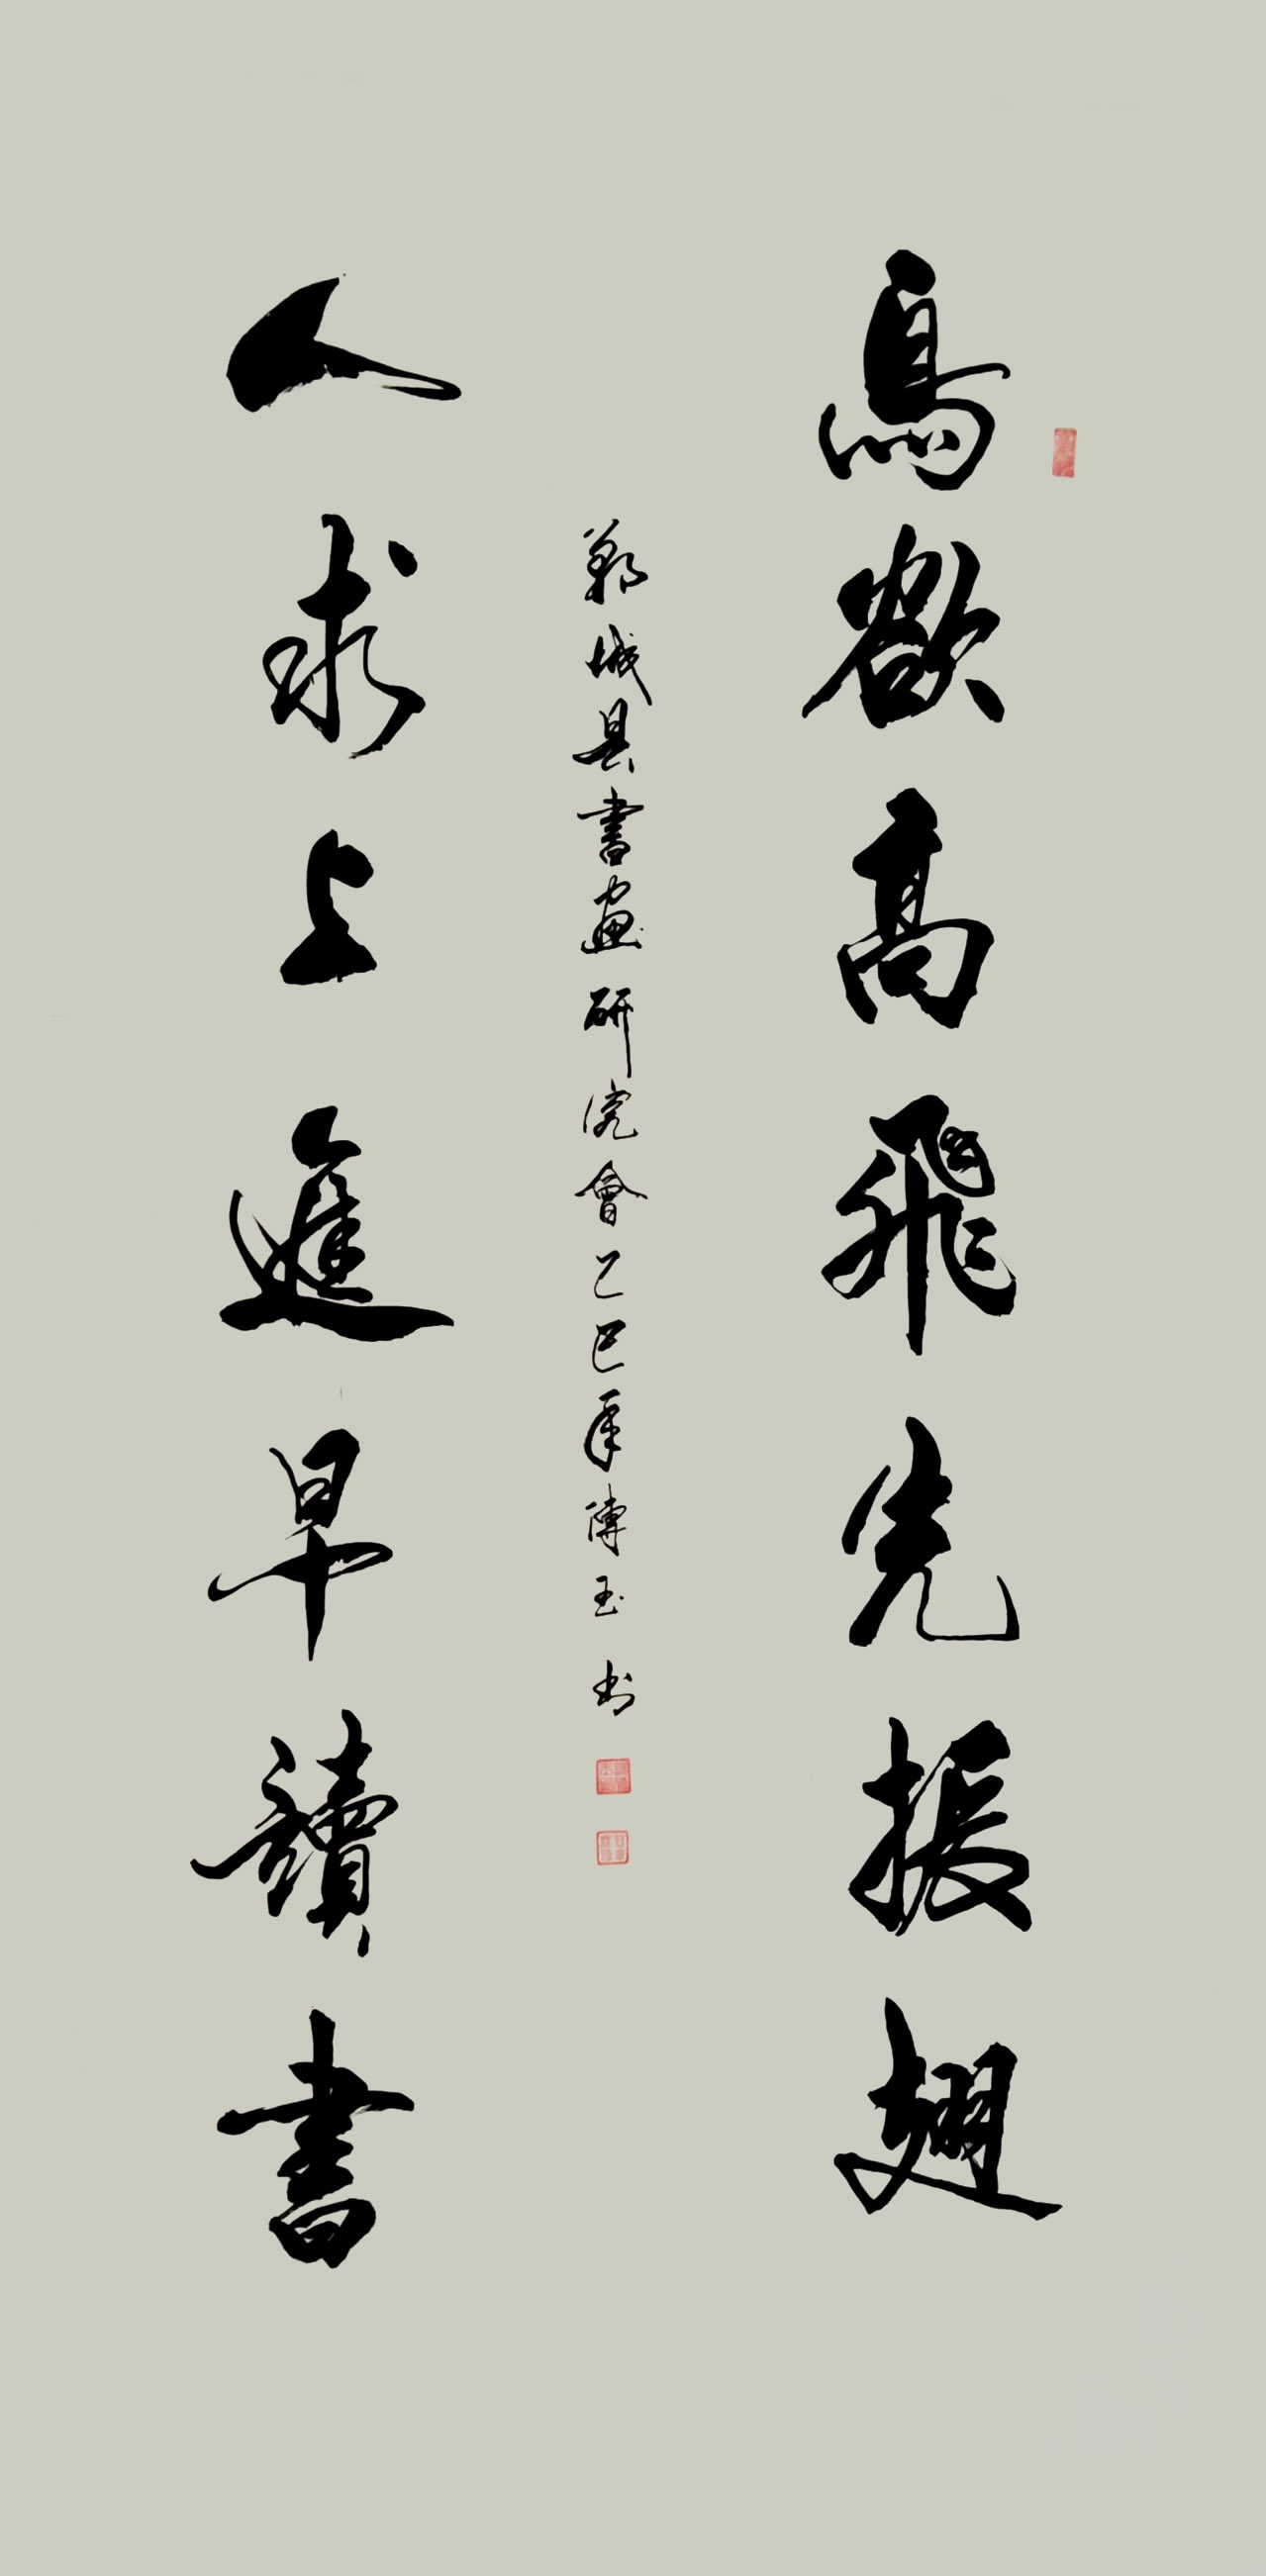 鳥欲高飛先振翅
人求上進早讀書
鄆城縣書畫研究會乙巳年傳玉书